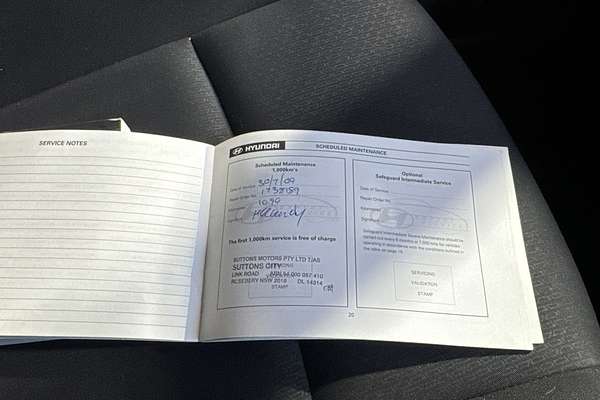 SERVICE NOTES
HYUNDAI
SCHEDULED MAINTENANCE
Scheduled Maintenance
1,000km's
Date of Service 30/7/09
Repair Order No. 1738159
Kilometres 1090
Signature
The first 1,000km service is free of charge
SUTTONS MOTORS PTY LTD T/AS
SUTTONS CITY
LINK ROAD
ROSEBERY NSW 2018 DL 14214
STAMP
Optional
Safeguard Intermediate Service
Date of Service
Repair Order No.
Kilometres
Signature
Safeguard Intermediate Service Maintenance should be
carried out every 6 months or 7,500 kms for vehicles
operating in accordance with the conditions outlined in
the note on page 15.
SERVICING
VALIDATION
STAMP
20